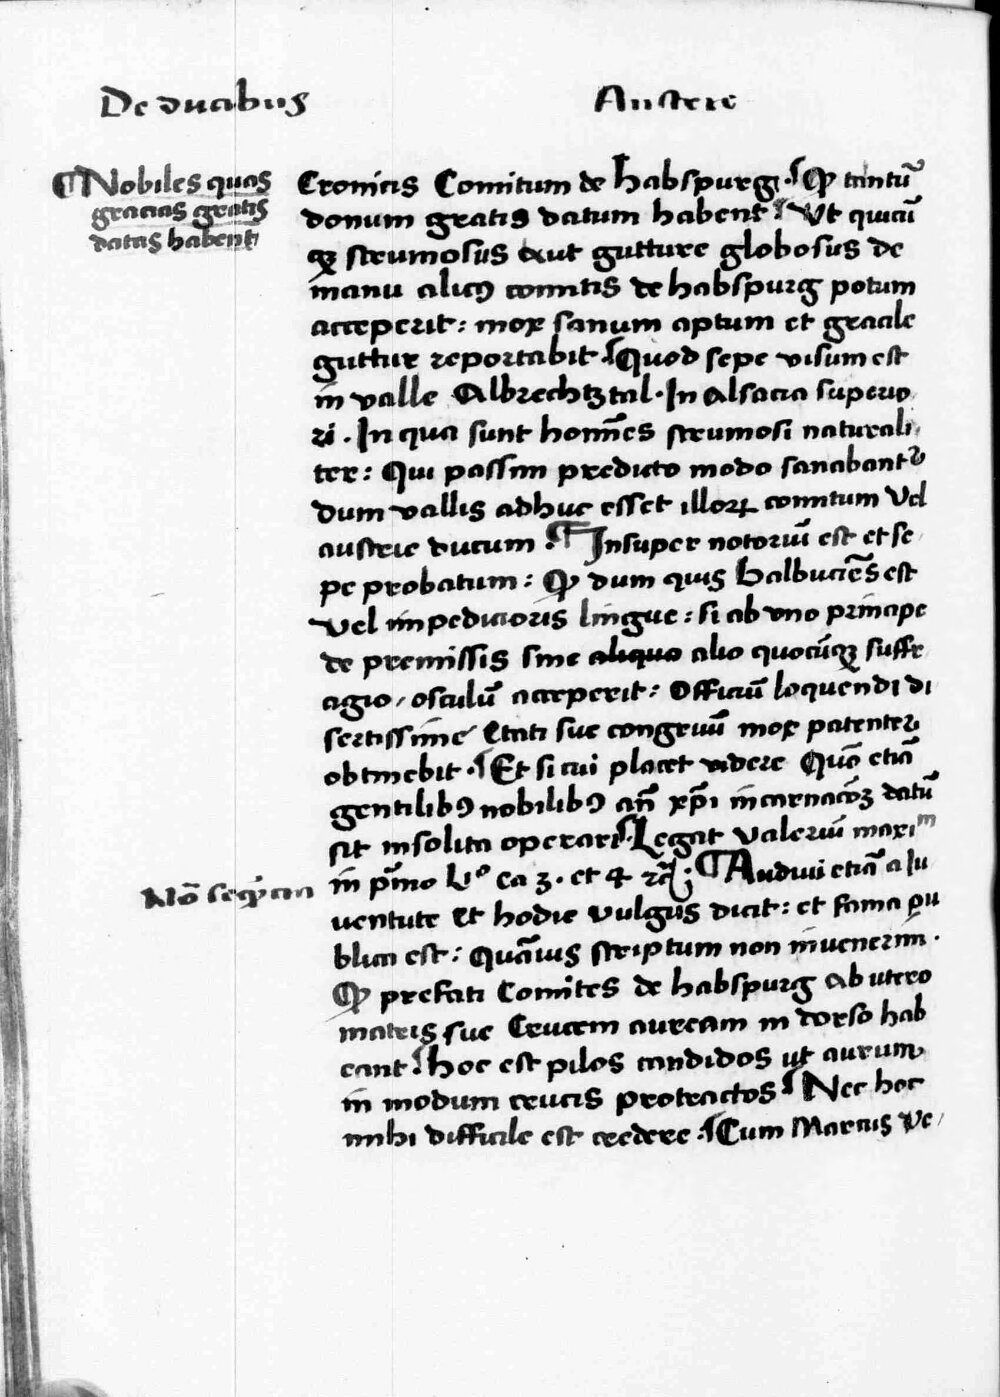 De ducibus Austere
¶ Nobiles quas
gracias gratis
datas habent
Cronicis Comitum de habspurg. Ꝙ tantū
donum gratis datum habent Ut quicū
qꝫ strumosus aut gutture globosus de
manu alicꝰ comitis de habspurg potum
acceperit: mox sanum aptum et gracile
guttur reportabit. Quod sepe visum est
in valle Albrechtztal. In Alsacia superio
ri. In qua sunt homīes strumosi naturali
ter: Qui passim predicto modo sanabantᷣ
dum vallis adhuc esset illoꝝ comitum vel
austrie ducum. ¶ Insuper notoriū est et se
pe probatum: Ꝙ dum quis balbuciēs est
vel impedicioris lingue: si ab uno principe
de premissis sine aliquo alio quocūqꝫ suffr
agio / osculū acceperit: Officiū loquendi di
sertissime Etati sue congruū mox patenter
obtinebit. Et si cui placet videre Quō etiā
gentilibꝰ nobilibꝰ an̄ xp̄i incarnacōꝫ datū
sit insolita operari. Legat Valeriū maxiᵐ
in pͥmo Liᵒ ca 3. et 4 ꝛc̄. ¶ Audivi etiā a Iu
Nō seq̄
ventute Et hodie vulgus dicit: et fama pu
blica est: Quāvis scriptum non invenerim.
Ꝙ prefati Comites de habspurg Ab utero
matris sue Crucem auream in dorso hab
eant hoc est pilos candidos ut aurum
in modum crucis protractos Nec hoc
mihi difficile est credere. Cum Marcus Ve